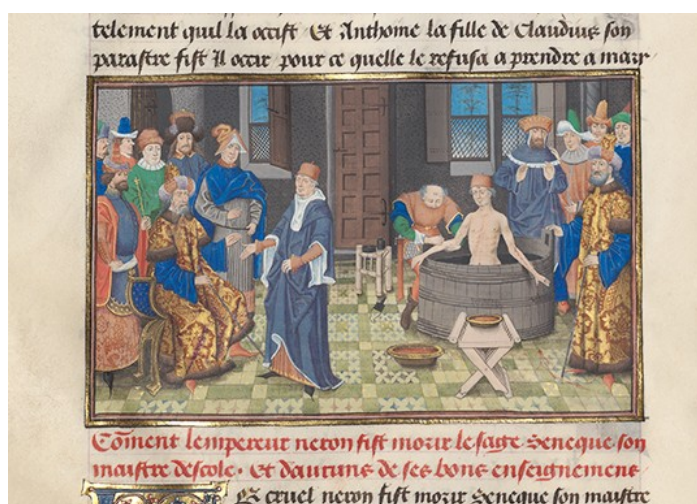 telement quil la occist Et Anthoine la fille de Claudius son
parastre fist Il occir pour ce quelle le refusa a prendre a mary
Cõment lempereur neron fist morir le sage Seneque son
maistre descole. Et daucuns de ses bons enseignemens
cruel neron fist morir Seneque son maistre